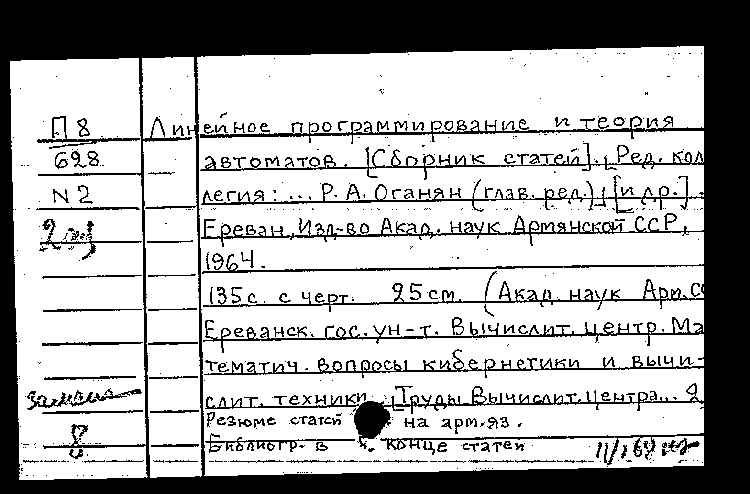 П 8
628
N 2
2 экз
Линейное программирование и теория
автоматов. [Сборник статей]. [Ред. кол
легия: ... Р. А. Оганян (глав. ред.), [и др.].
Ереван, Изд-во Акад. наук Армянской ССР,
1964.
135 с. с черт. 25 см. (Акад. наук Арм. СС
Ереванск. гос. ун-т. Вычислит. центр. Ма
тематич. вопросы кибернетики и вычи-
слит. техники. [Труды Вычислит. центра... 2
Резюме статей на арм. яз.
Библиогр. в конце статей
замена
8